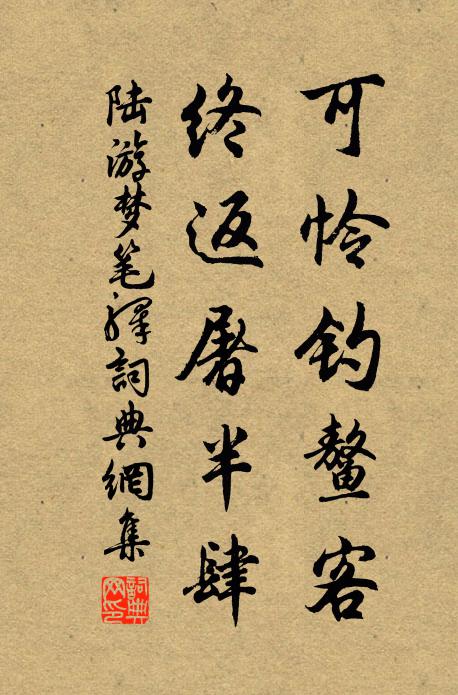 可怜钓鳌客
终返屠羊肆
陆游梦笔驛詞典網集
詞典网印